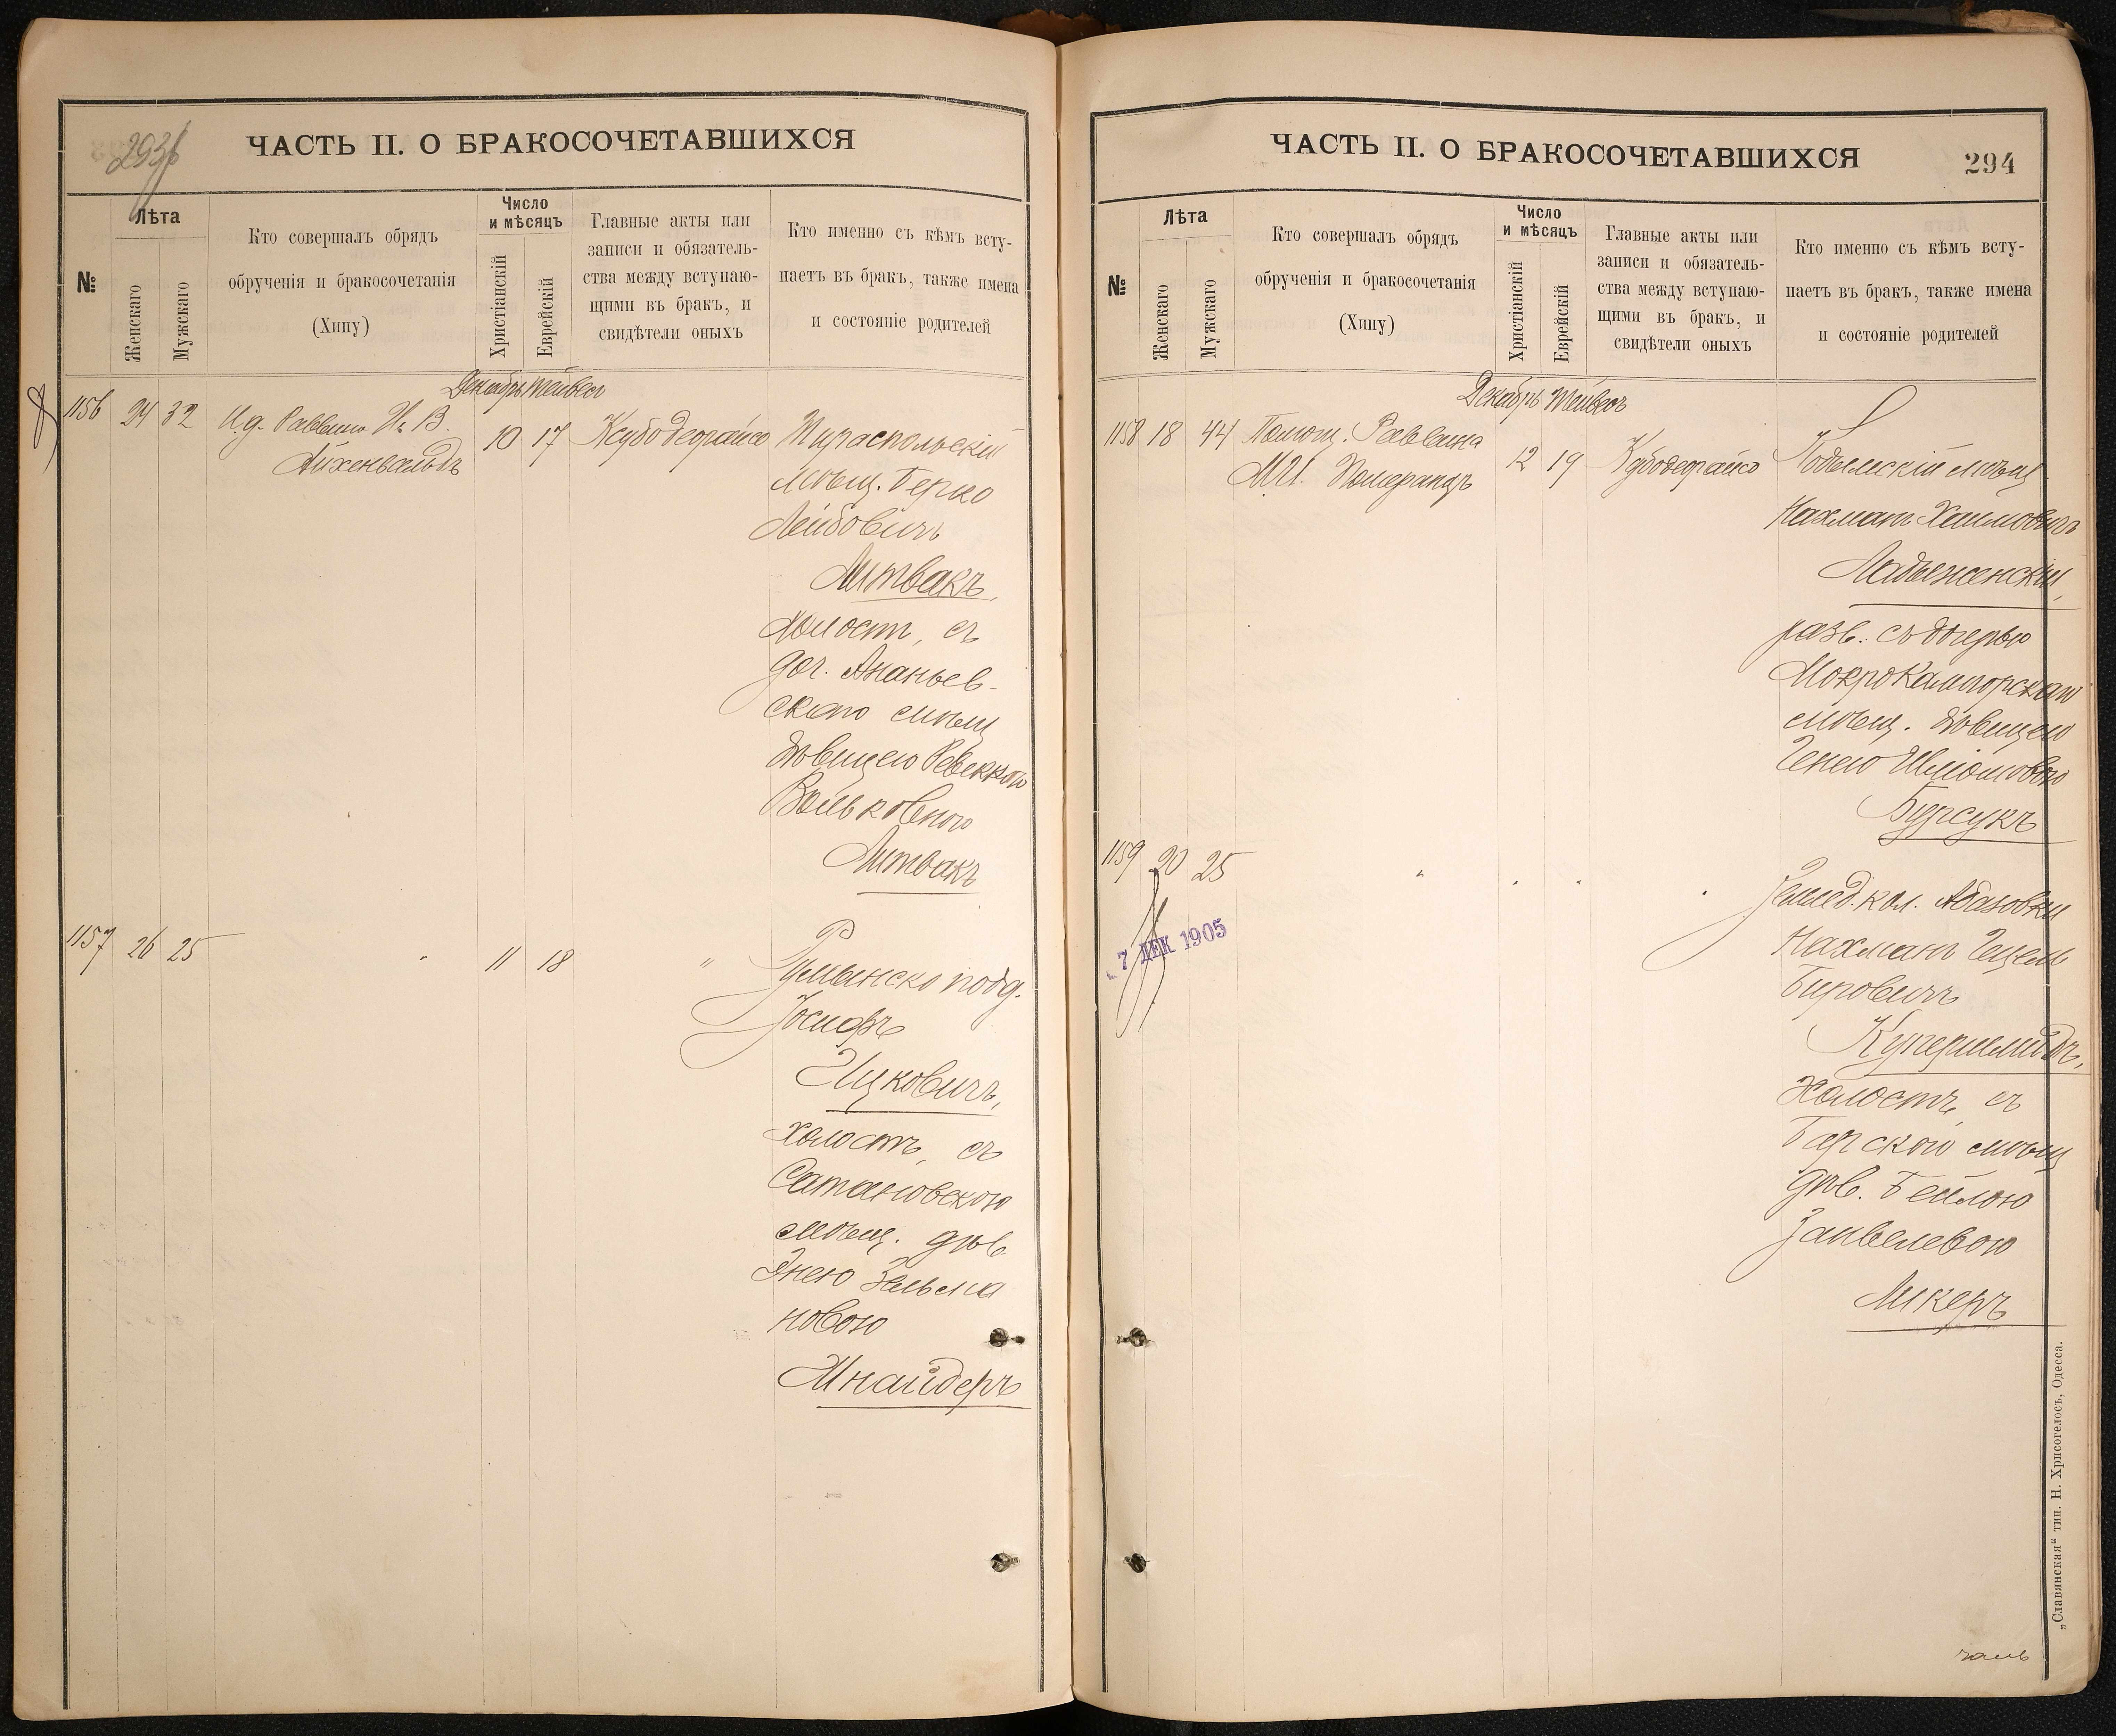 293
ЧАСТЬ II. О БРАКОСОЧЕТАВШИХСЯ
№
Лѣта
Женскаго
Мужскаго
Кто совершалъ обрядъ
обрученія и бракосочетанія
(Хипу)
Число
и мѣсяцъ
Христіанскій
Еврейскій
Главные акты или
записи и обязатель-
ства между вступаю-
щими въ бракъ, и
свидѣтели оныхъ
Кто именно съ кѣмъ всту-
паетъ въ бракъ, также имена
и состояніе родителей
Декабрь Тейвесъ
1156 24 32 И.д. Раввина И. В.
Айхенвальдъ
10 17 Ксубо деорайсо
Тираспольскій
мѣщ. Берко
Лейбовичъ
Литвакъ,
холост, съ
доч. Ананьев-
скаго мѣщ
дѣвицею Ревеккою
Вольковною
Литвакъ
1157 26 25 " 11 18 "
Румынско подд.
Іосифъ
Ицковичъ,
холостъ, съ
Сатановскою
мѣщ. дѣв.
Энею Зельма
новою
Шнайдеръ
ЧАСТЬ II. О БРАКОСОЧЕТАВШИХСЯ
294
№
Лѣта
Женскаго
Мужскаго
Кто совершалъ обрядъ
обрученія и бракосочетанія
(Хипу)
Число
и мѣсяцъ
Христіанскій
Еврейскій
Главные акты или
записи и обязатель-
ства между вступаю-
щими въ бракъ, и
свидѣтели оныхъ
Кто именно съ кѣмъ всту-
паетъ въ бракъ, также имена
и состояніе родителей
Декабрь Тейвесъ
1158 18 44 Помощ. Раввина
М.И. Померанцъ
12 19 Ксубодеорайсо
мѣщ
Нахман Хаимовичъ
Ладыженскій,
разв. съ дочерью
мѣщ. дѣвицею
Генею Шліомовою
Бурсукъ
1159 20 25 " " " "
7 ДЕК 1905
Земл. кол. Абазовки
Нахман Гецель
Беровичъ
Купершмидъ,
Холостъ, съ
Барской мѣщ
дѣв. Бейлою
Занвелевою
Ликеръ
„Славянская“ тип. Н. Хрисогелосъ, Одесса.